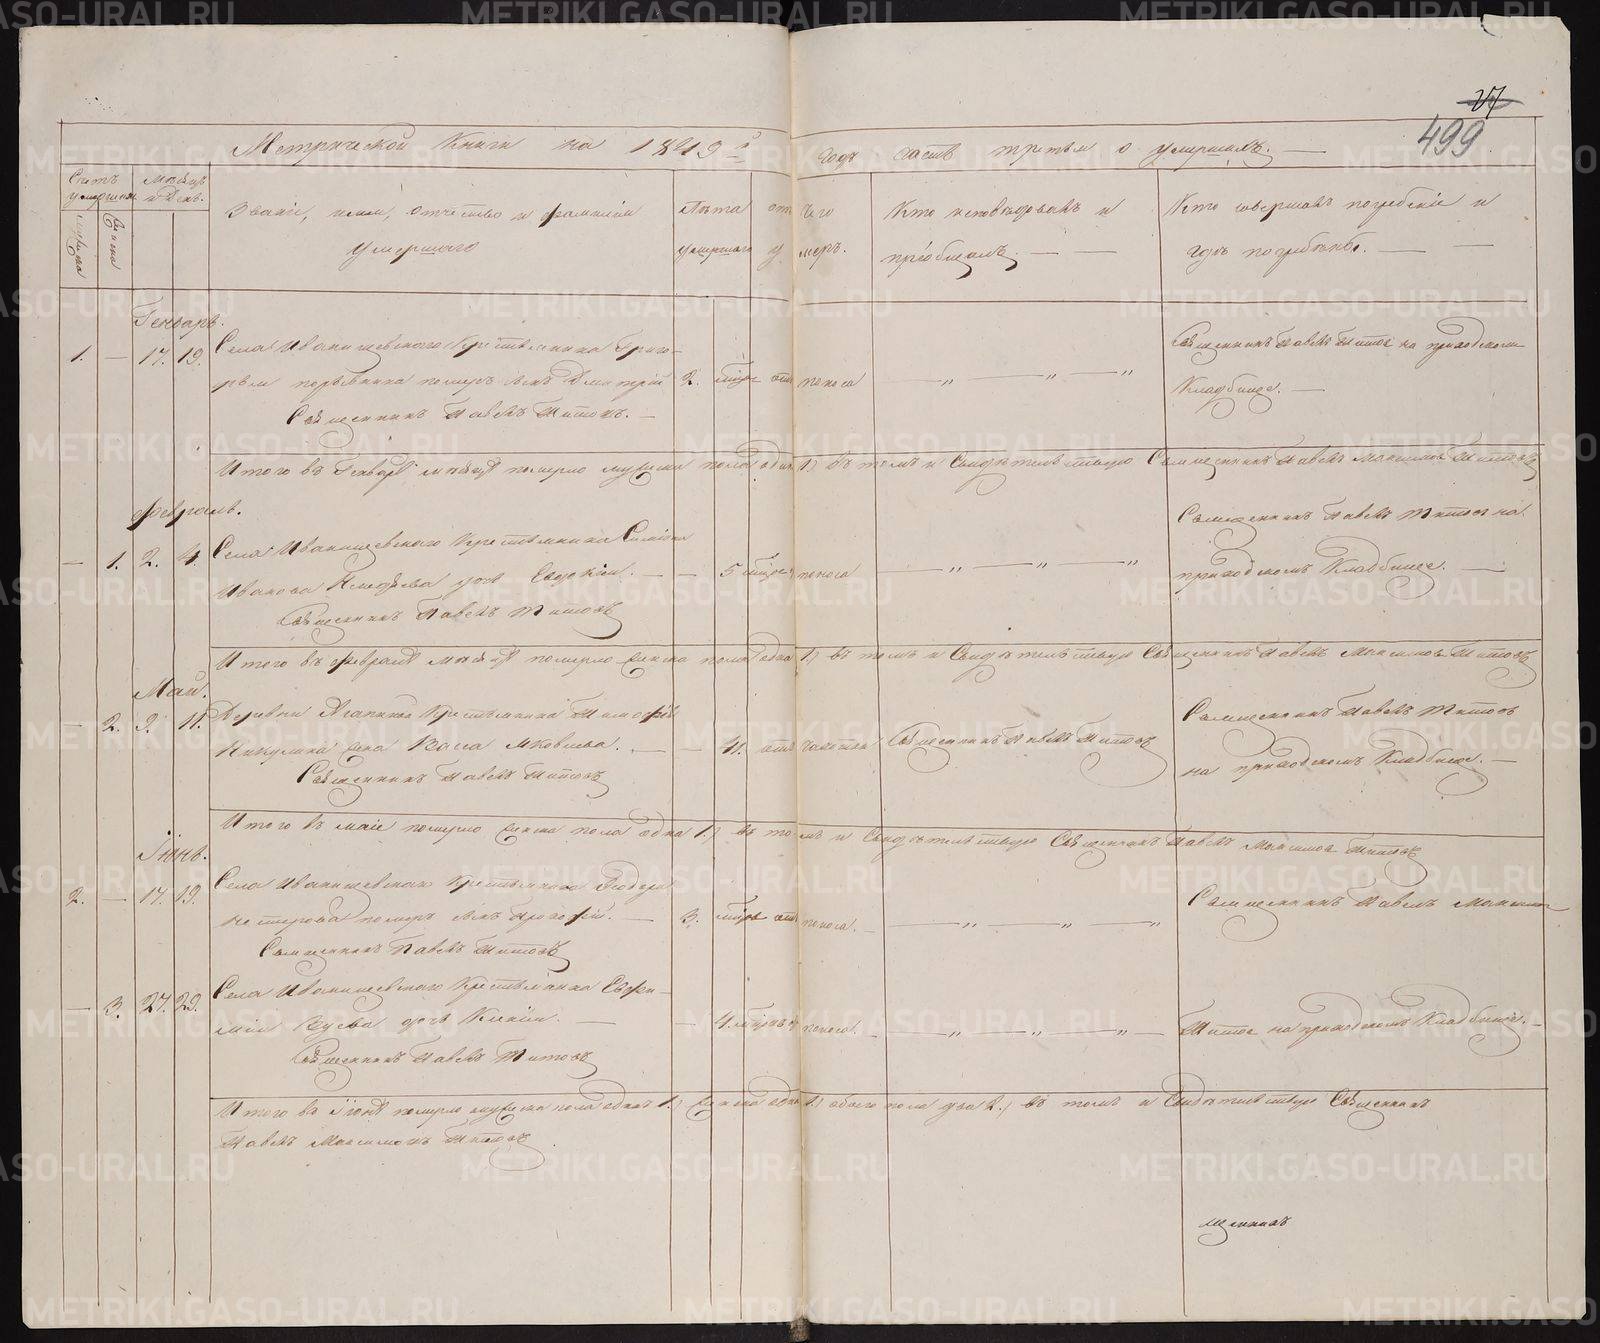 27
499
Метрической Книги на 1849й годъ часть третья о умершихъ.
Счетъ умершихъ
Мѣсяцъ и День.
Званіе, имя, отчество и фамилія умершаго
Лѣта умершаго
отъ чего умеръ.
Кто исповѣдовалъ и пріобщалъ.
Кто совершалъ погребеніе и гдѣ погребены.
Генварь.
1. — 17. 19. Села Иванищевскаго Крестьянина Григо-
померъ сынъ Дмитрій 2. отъ поноса
Священникъ Павелъ Титовъ.
Священникъ Павелъ Титовъ на приходскомъ
Кладбище.
Итого въ Генварѣ мѣсяцѣ померло мужеска пола одинъ 1.) въ томъ и Свидѣтельствую Священникъ Павелъ Максимовъ Титовъ
Февраль.
— 1. 2. 4. Села Иванищевскаго Крестьянина Симеона
Иванова дочь Евдокія. — 5 поноса
Священникъ Павелъ Титовъ
Священникъ Павелъ Титовъ на
приходскомъ Кладбище.
Итого въ Февралѣ мѣсяцѣ померло женска пола одна 1.) въ томъ и Свидѣтельствую Священникъ Павелъ Максимовъ Титовъ
Май.
— 2. 9. 11. Деревни Крестьянина Тимофея
Никулина жена Яковлева. — 41. отъ чахотки Священникъ Павелъ Титовъ
Священникъ Павелъ Титовъ
Священникъ Павелъ Титовъ
на приходскомъ Кладбище.
Итого въ маіе померло женска пола одна 1.) въ томъ и Свидѣтельствую Священникъ Павелъ Максимовъ Титовъ
Іюнь.
2. — 17. 19. Села Иванищевскаго Крестьянина Ѳедора
Нестерова померъ сынъ Прокофій. — 3. отъ поноса.
Священникъ Павелъ Титовъ
Священникъ Павелъ Максимовъ
— 3. 27. 29. Села Иванищевскаго Крестьянина Ефи-
мія дочь — 4. поноса.
Священникъ Павелъ Титовъ
Титовъ на приходскомъ Кладбище.
Итого въ Іюнѣ померло мужеска пола одинъ 1.) женска одна 1.) обоего пола два 2.) въ томъ и Свидѣтельствую Священникъ
Павелъ Максимовъ Титовъ
щенникъ
METRIKI.GASO-URAL.RU